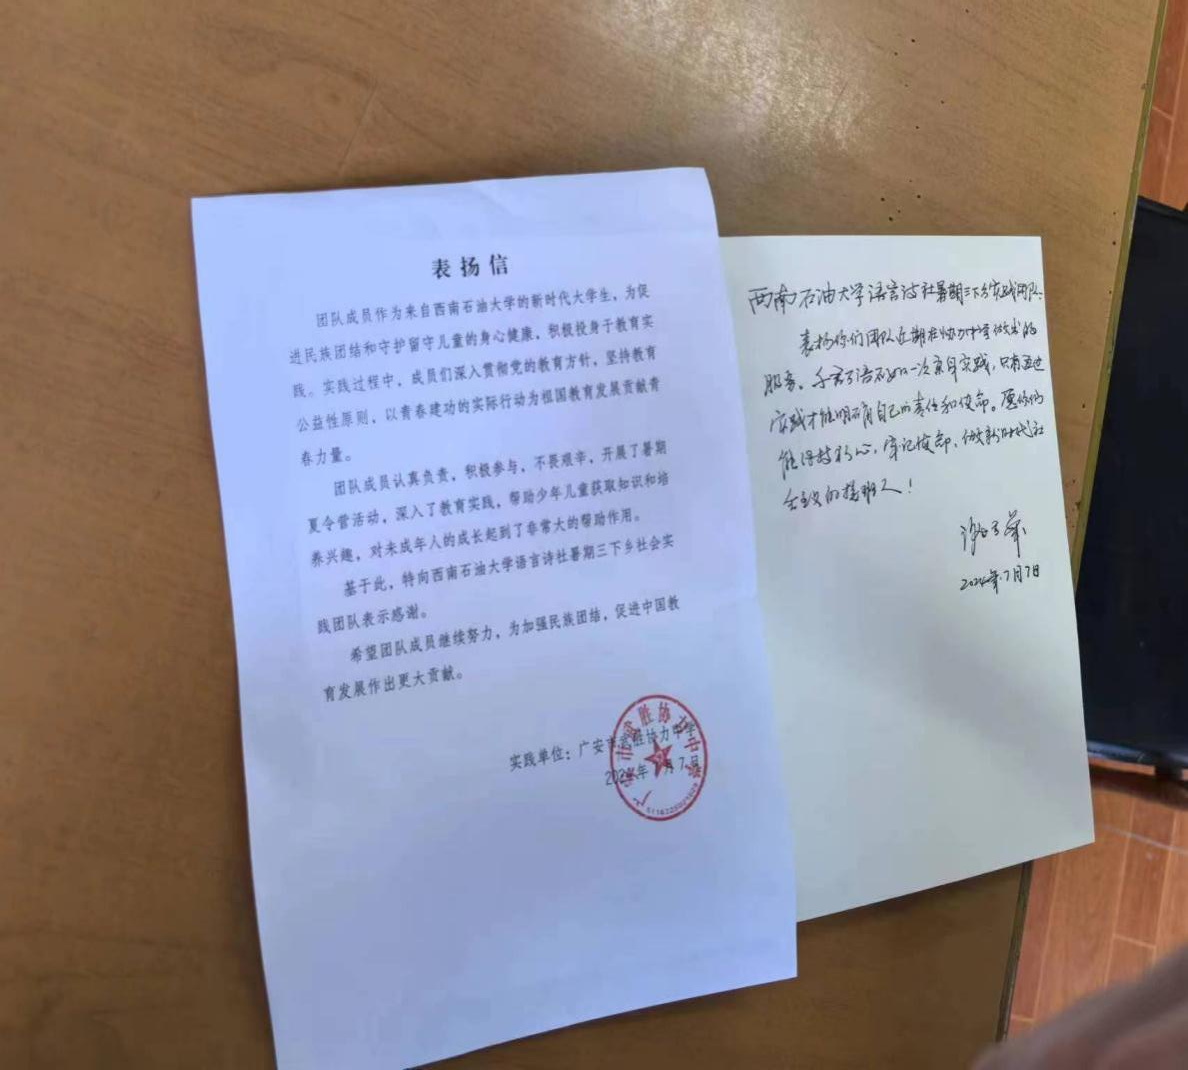 表扬信
团队成员作为来自西南石油大学的新时代大学生，为促
进民族团结和守护留守儿童的身心健康，积极投身于教育实
践。实践过程中，成员们深入贯彻党的教育方针，坚持教育
公益性原则，以青春建功的实际行动为祖国教育发展贡献青
春力量。
团队成员认真负责，积极参与，不畏艰辛，开展了暑期
夏令营活动，深入了教育实践，帮助少年儿童获取知识和培
养兴趣，对未成年人的成长起到了非常大的帮助作用。
基于此，特向西南石油大学语言诗社暑期三下乡社会实
践团队表示感谢。
希望团队成员继续努力，为加强民族团结，促进中国教
育发展作出更大贡献。
实践单位：广安市武胜协力中学
2024年7月7日
西南石油大学语言诗社暑期三下乡实践团队：
表扬你们团队近期在协力中学做出的
服务。千言万语不如一次亲身实践，只有通过
实践才能明确自己的责任和使命。愿你们
能保持初心，牢记使命，做新时代社
会主义的接班人！
2024年7月7日